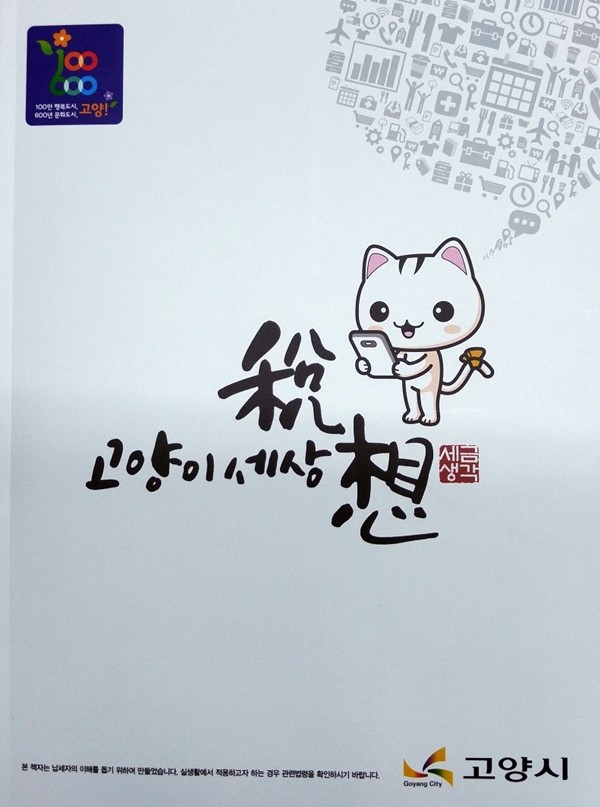 100
600
100만 행복도시,
600년 문화도시, 고양!
稅
고양이세상 想
세금
생각
본 책자는 납세자의 이해를 돕기 위하여 만들었습니다. 실생활에서 적용하고자 하는 경우 관련법령을 확인하시기 바랍니다.
Goyang City
고양시